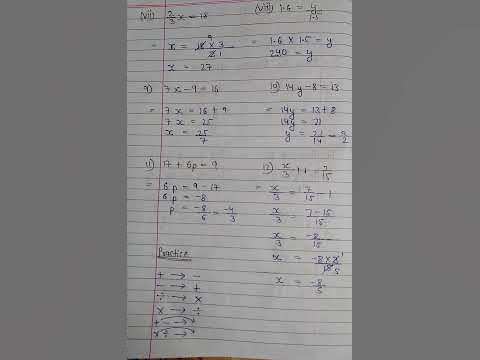 (vii) 2/3 x = 18
= x = 18 9 × 3 / 2 1
x = 27
(viii) 1.6 = y/1.5
= 1.6 × 1.5 = y
240 = y
9) 7x - 9 = 16
= 7x = 16 + 9
7x = 25
x = 25/7
10) 14y - 8 = 13
= 14y = 13 + 8
14y = 21
y = 21/14 = 3/2
11) 17 + 6p = 9
= 6p = 9 - 17
6p = -8
p = -8/6 = -4/3
12) x/3 + 1 = 7/15
= x/3 = 7/15 - 1
x/3 = 7-15/15
x/3 = -8/15
x = -8 × 3 1 / 15 5
x = -8/5
Practice
+ → -
- → +
÷ → ×
× → ÷
+ - →
× ÷ →